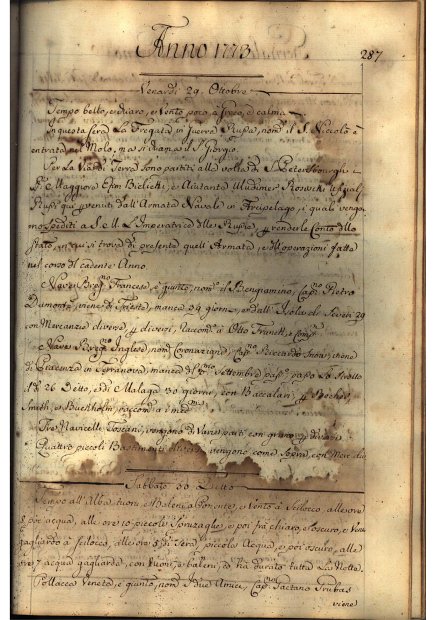 Anno 1773.
287
Venardi 29. Ottobre
Tempo bello, e chiaro, e Vento poco à Greco, e calma
In questa sera La Fregata in Guerra Russa, nom.ta il S. Niccolò è
entrata nel Molo, ma si chiama il S. Giorgio.
Per La Via di Terra sono partiti alla volta di S. Petersbourgh
Maggiore Efim Belichi, e Aiutante Wladimer Roswchi
Russi quà venuti dall'Armata Navale in Arcipelago, i quali vengo
no spediti a S. M. L'Imperatrice delle Russie p. renderle Conto dello
stato, in cui si trova di presente quell'Armata, e dell'operazioni fatte
nel corso del cadente Anno.
Nave Francese, è giunta, nom.ta il Bengiamino, Cap.no Pietro
Dumont, viene di manca 54 giorni, e dall'Isola de 29
con Mercanzie diverse, p. diversi, Raccom.ta à Otto Franck, e Comp.
Nave Inglese, nom. Cap.no Riccardo Snow, viene
di in Terranova, manca del Settembre pass. passò Lo Stretto
il di 26 Detto, e di Malaga 30 giorni, con Baccalari, p.
Smith, e raccom.ta à me
Tre Navicelle Toscani, vengono di Varie parti con grano
Quattro piccoli Bastimenti vengono come Sopra, con
Sabbato 30 Detto
Tempo all'Alba tuoni, e Baleni à Ponente, e Vento à Scilocco, alle ore
8 poc' acqua, alle ore 10 piccole spruzaglie, e poi frà chiaro, e oscuro, e Vento
gagliardo à Scilocco, alle ore 5 di sera, piccola Acqua, e poi oscuro, alle
ore 7 acqua gagliarda, con tuoni, e baleni, et hà durato tutta La Notte.
Pollacca Veneta, è giunta, nom.ta I due Amici, Cap.no Gaetano Grubas
viene